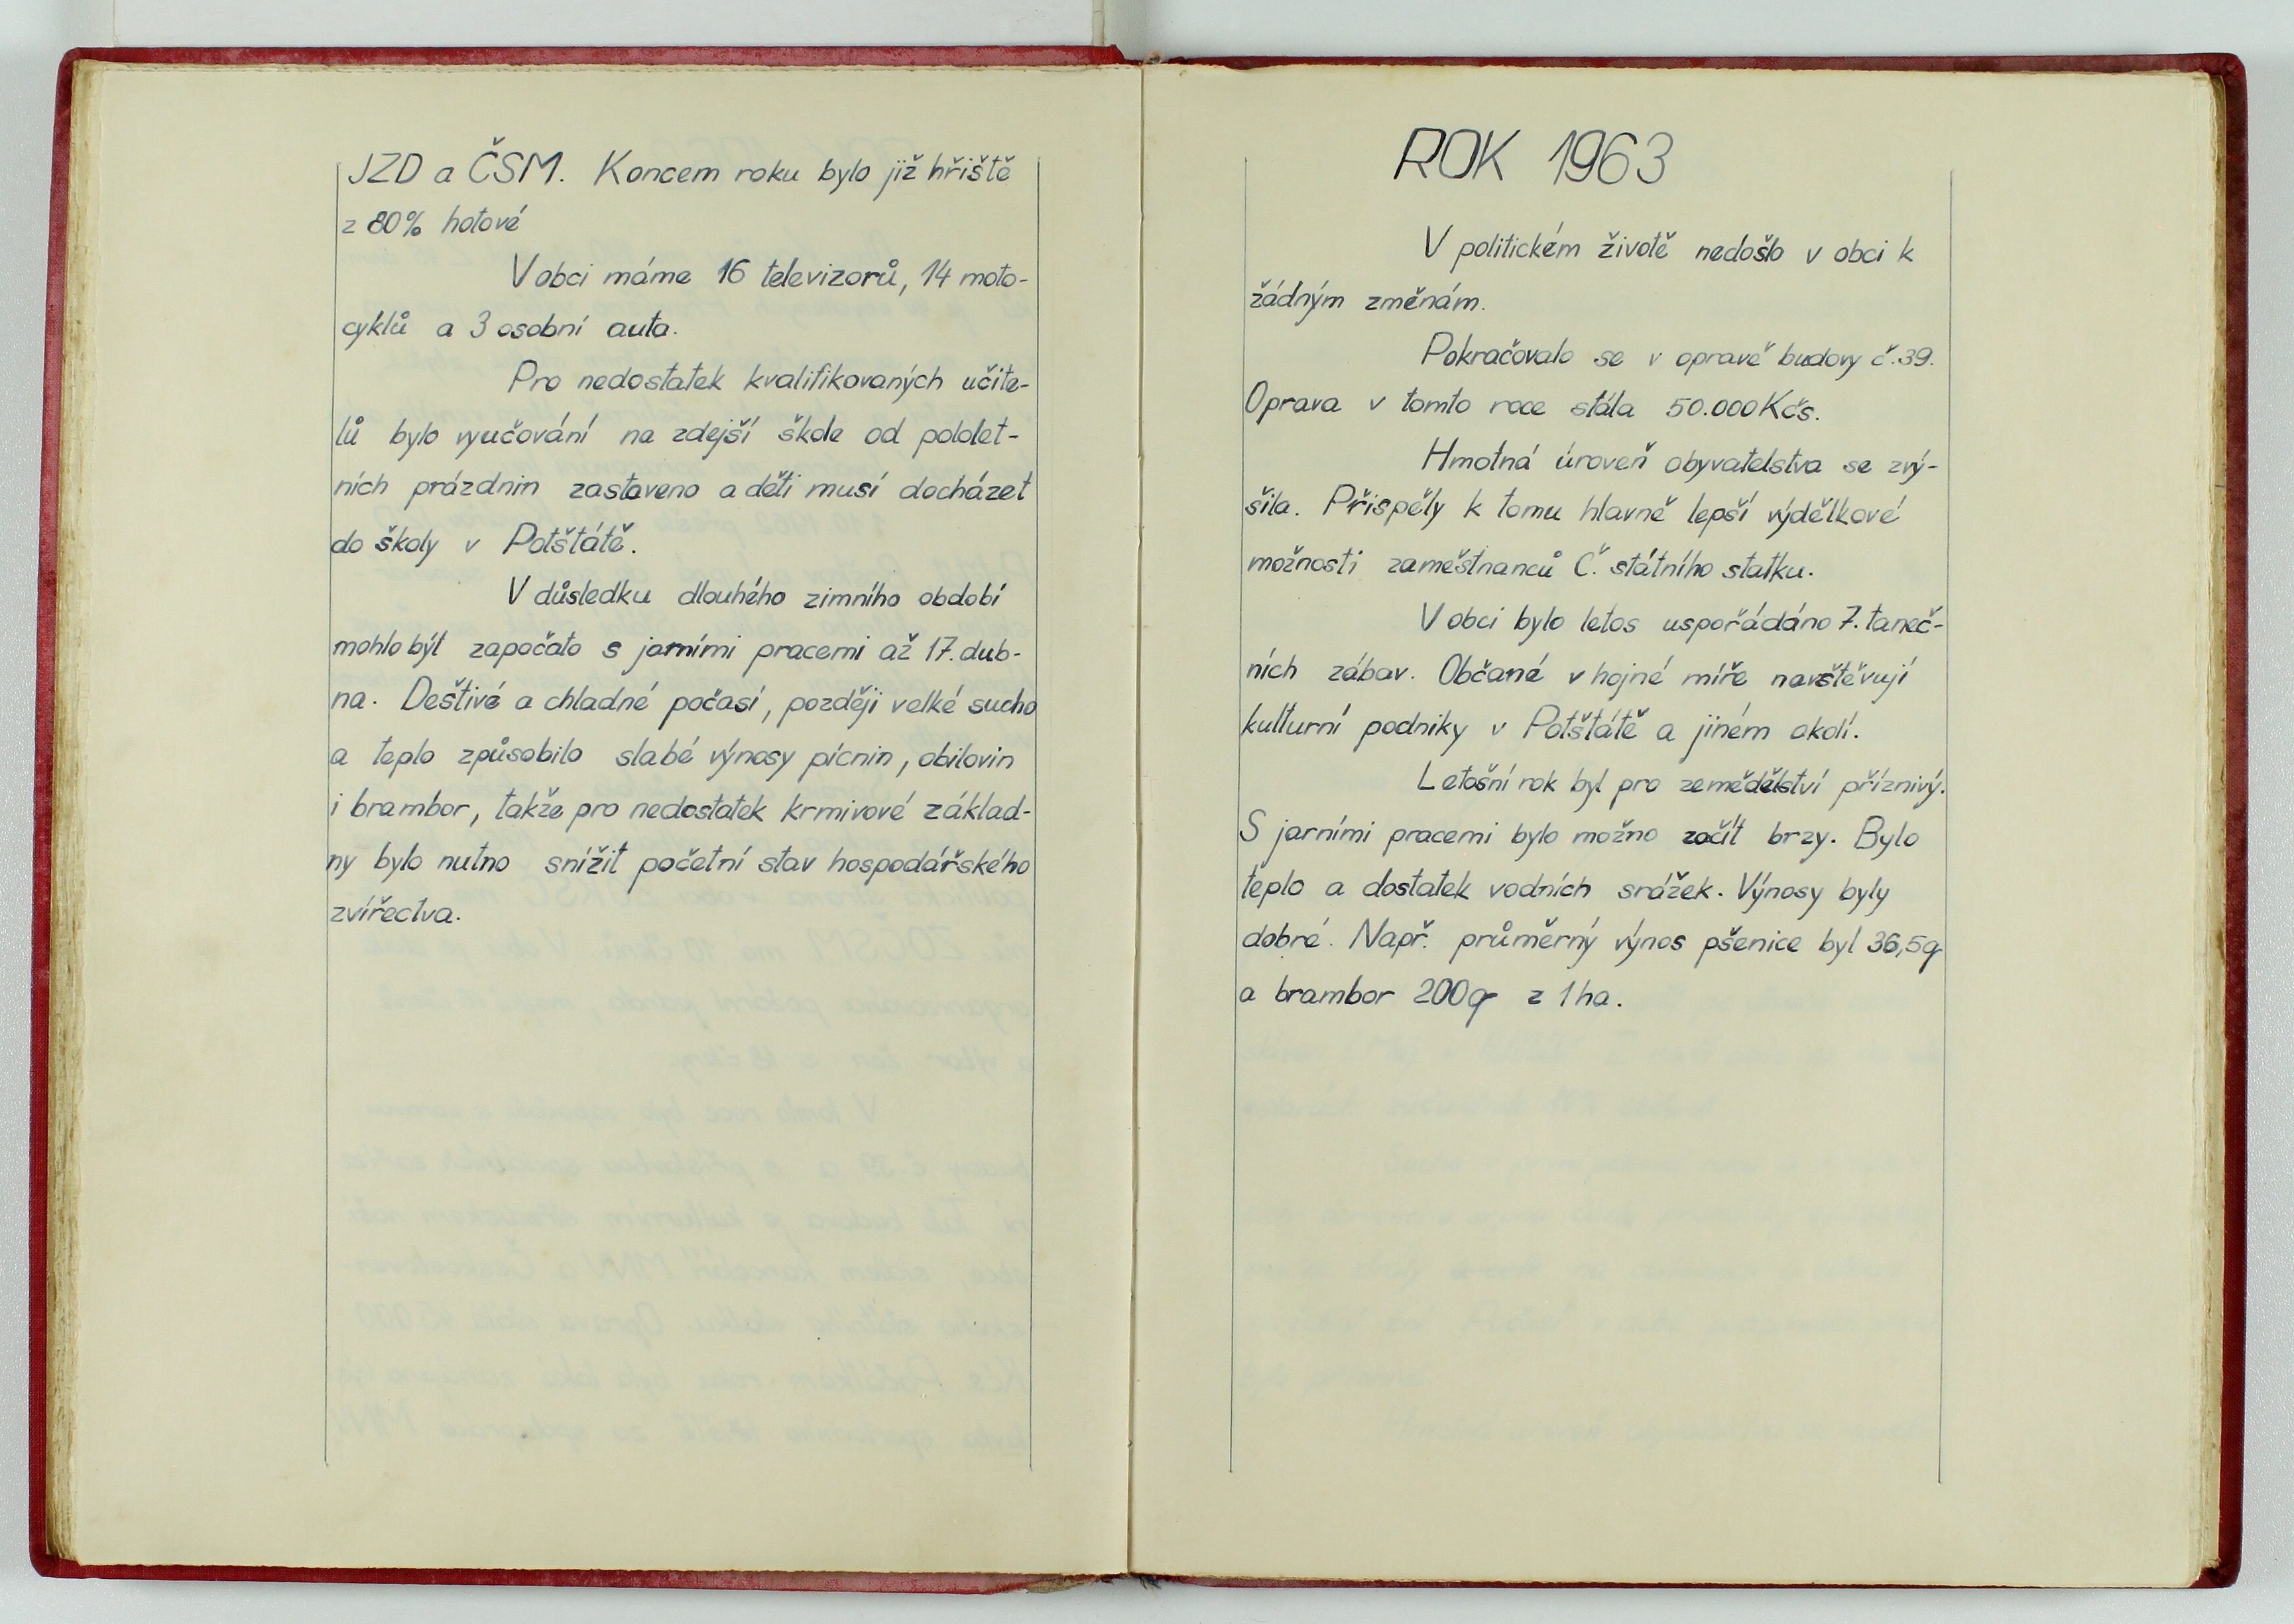 JZD a ČSM. Koncem roku bylo již hřiště
z 80% hotové
V obci máme 16 televizorů, 14 moto-
cyklů a 3 osobní auta.
Pro nedostatek kvalifikovaných učite-
lů bylo vyučování na zdejší škole od pololet-
ních prázdnin zastaveno a děti musí docházet
do školy v Potštátě.
V důsledku dlouhého zimního období
mohlo být započato s jarními pracemi až 17. dub-
na. Deštivé a chladné počasí, později velké sucho
a teplo způsobilo slabé výnosy pícnin, obilovin
i brambor, takže pro nedostatek krmivové základ-
ny bylo nutno snížit početní stav hospodářského
zvířectva.
ROK 1963
V politickém životě nedošlo v obci k
žádným změnám.
Pokračovalo se v opravě budovy č. 39.
Oprava v tomto roce stála 50.000 Kčs.
Hmotná úroveň obyvatelstva se zvý-
šila. Přispěly k tomu hlavně lepší výdělkové
možnosti zaměstnanců Č. státního statku.
V obci bylo letos uspořádáno 7. taneč-
ních zábav. Občané v hojné míře navštěvují
kulturní podniky v Potštátě a jiném okolí.
Letošní rok byl pro zemědělství příznivý.
S jarními pracemi bylo možno začít brzy. Bylo
teplo a dostatek vodních srážek. Výnosy byly
dobré. Např. průměrný výnos pšenice byl 36,5 q
a brambor 200 q z 1 ha.